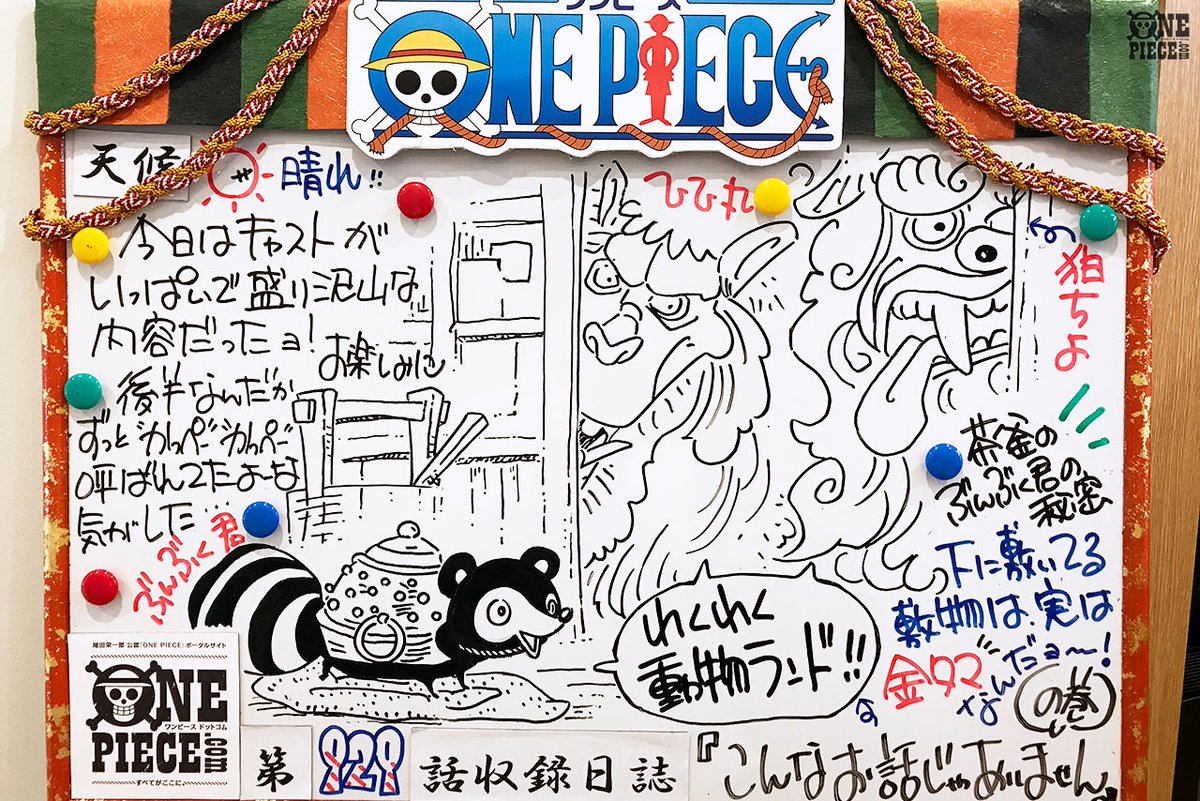 ワンピース
ONE PIECE
ONE
PIECE.com
天候
晴れ!!
今日はキャストが
いっぱいで盛り沢山な
内容だったョ!
お楽しみに
後半なんだか
ずっとかっぺーかっぺー
呼ばれてたよーな
気がした…
ぶんぶく君
ひひ丸
狛ちよ
茶釜の
ぶんぶく君の
秘密
下に敷いてる
敷物は、実は
金タマ
なんだョ〜!
わくわく
動物ランド!!
の巻
尾田栄一郎 公認「ONE PIECE」ポータルサイト
ONE
ワンピース ドットコム
PIECE.com
すべてがここに。
第929話収録日誌
『こんなお話じゃありません。